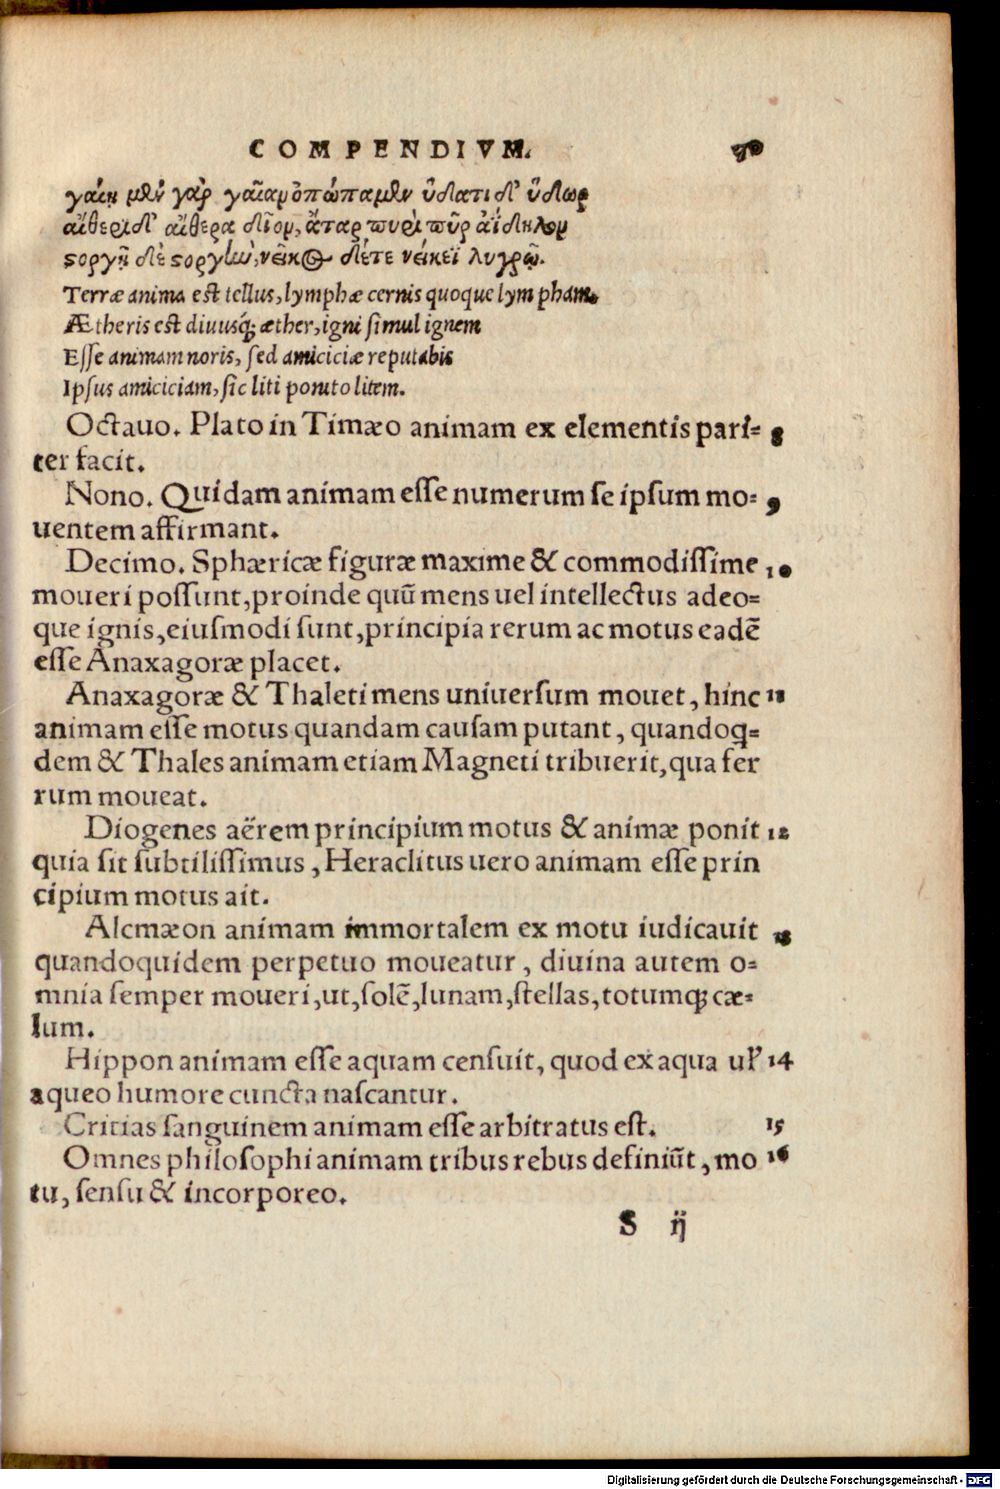 COMPENDIVM. 70
γαίῃ μὲν γὰρ γαῖαμ ὀπώπαμεν ὕδατι δ' ὕδωρ
αἰθέρι δ' αἰθέρα δῖομ, ἄταρ πυρὶ πῦρ ἀΐδηλομ
ςοργῇ δὲ ςοργὴν, νεῖκος δέτε νείκεϊ λυγρῷ.
Terræ anima est tellus, lymphæ cernis quoque lympham.
Ætheris est diuusq; æther, igni simul ignem
Esse animam noris, sed amiciciæ reputabis
Ipsus amiciciam, sic liti ponito litem.
Octauo. Plato in Timæo animam ex elementis pari= 8
ter facit.
Nono. Quidam animam esse numerum se ipsum mo= 9
uentem affirmant.
Decimo. Sphæricæ figuræ maxime & commodissime 10
moueri possunt, proinde quū mens uel intellectus adeo=
que ignis, eiusmodi sunt, principia rerum ac motus eadē
esse Anaxagoræ placet.
Anaxagoræ & Thaleti mens uniuersum mouet, hinc 11
animam esse motus quandam causam putant, quandoq=
dem & Thales animam etiam Magneti tribuerit, qua fer
rum moueat.
Diogenes aërem principium motus & animæ ponit 12
quia sit subtilissimus, Heraclitus uero animam esse prin
cipium motus ait.
Alcmæon animam immortalem ex motu iudicauit 13
quandoquidem perpetuo moueatur, diuina autem o=
mnia semper moueri, ut, solē, lunam, stellas, totumq; cæ=
lum.
Hippon animam esse aquam censuit, quod ex aqua ul' 14
aqueo humore cuncta nascantur.
Critias sanguinem animam esse arbitratus est. 15
Omnes philosophi animam tribus rebus definiūt, mo 16
tu, sensu & incorporeo.
S ij
Digitalisierung gefördert durch die Deutsche Forschungsgemeinschaft - DFG